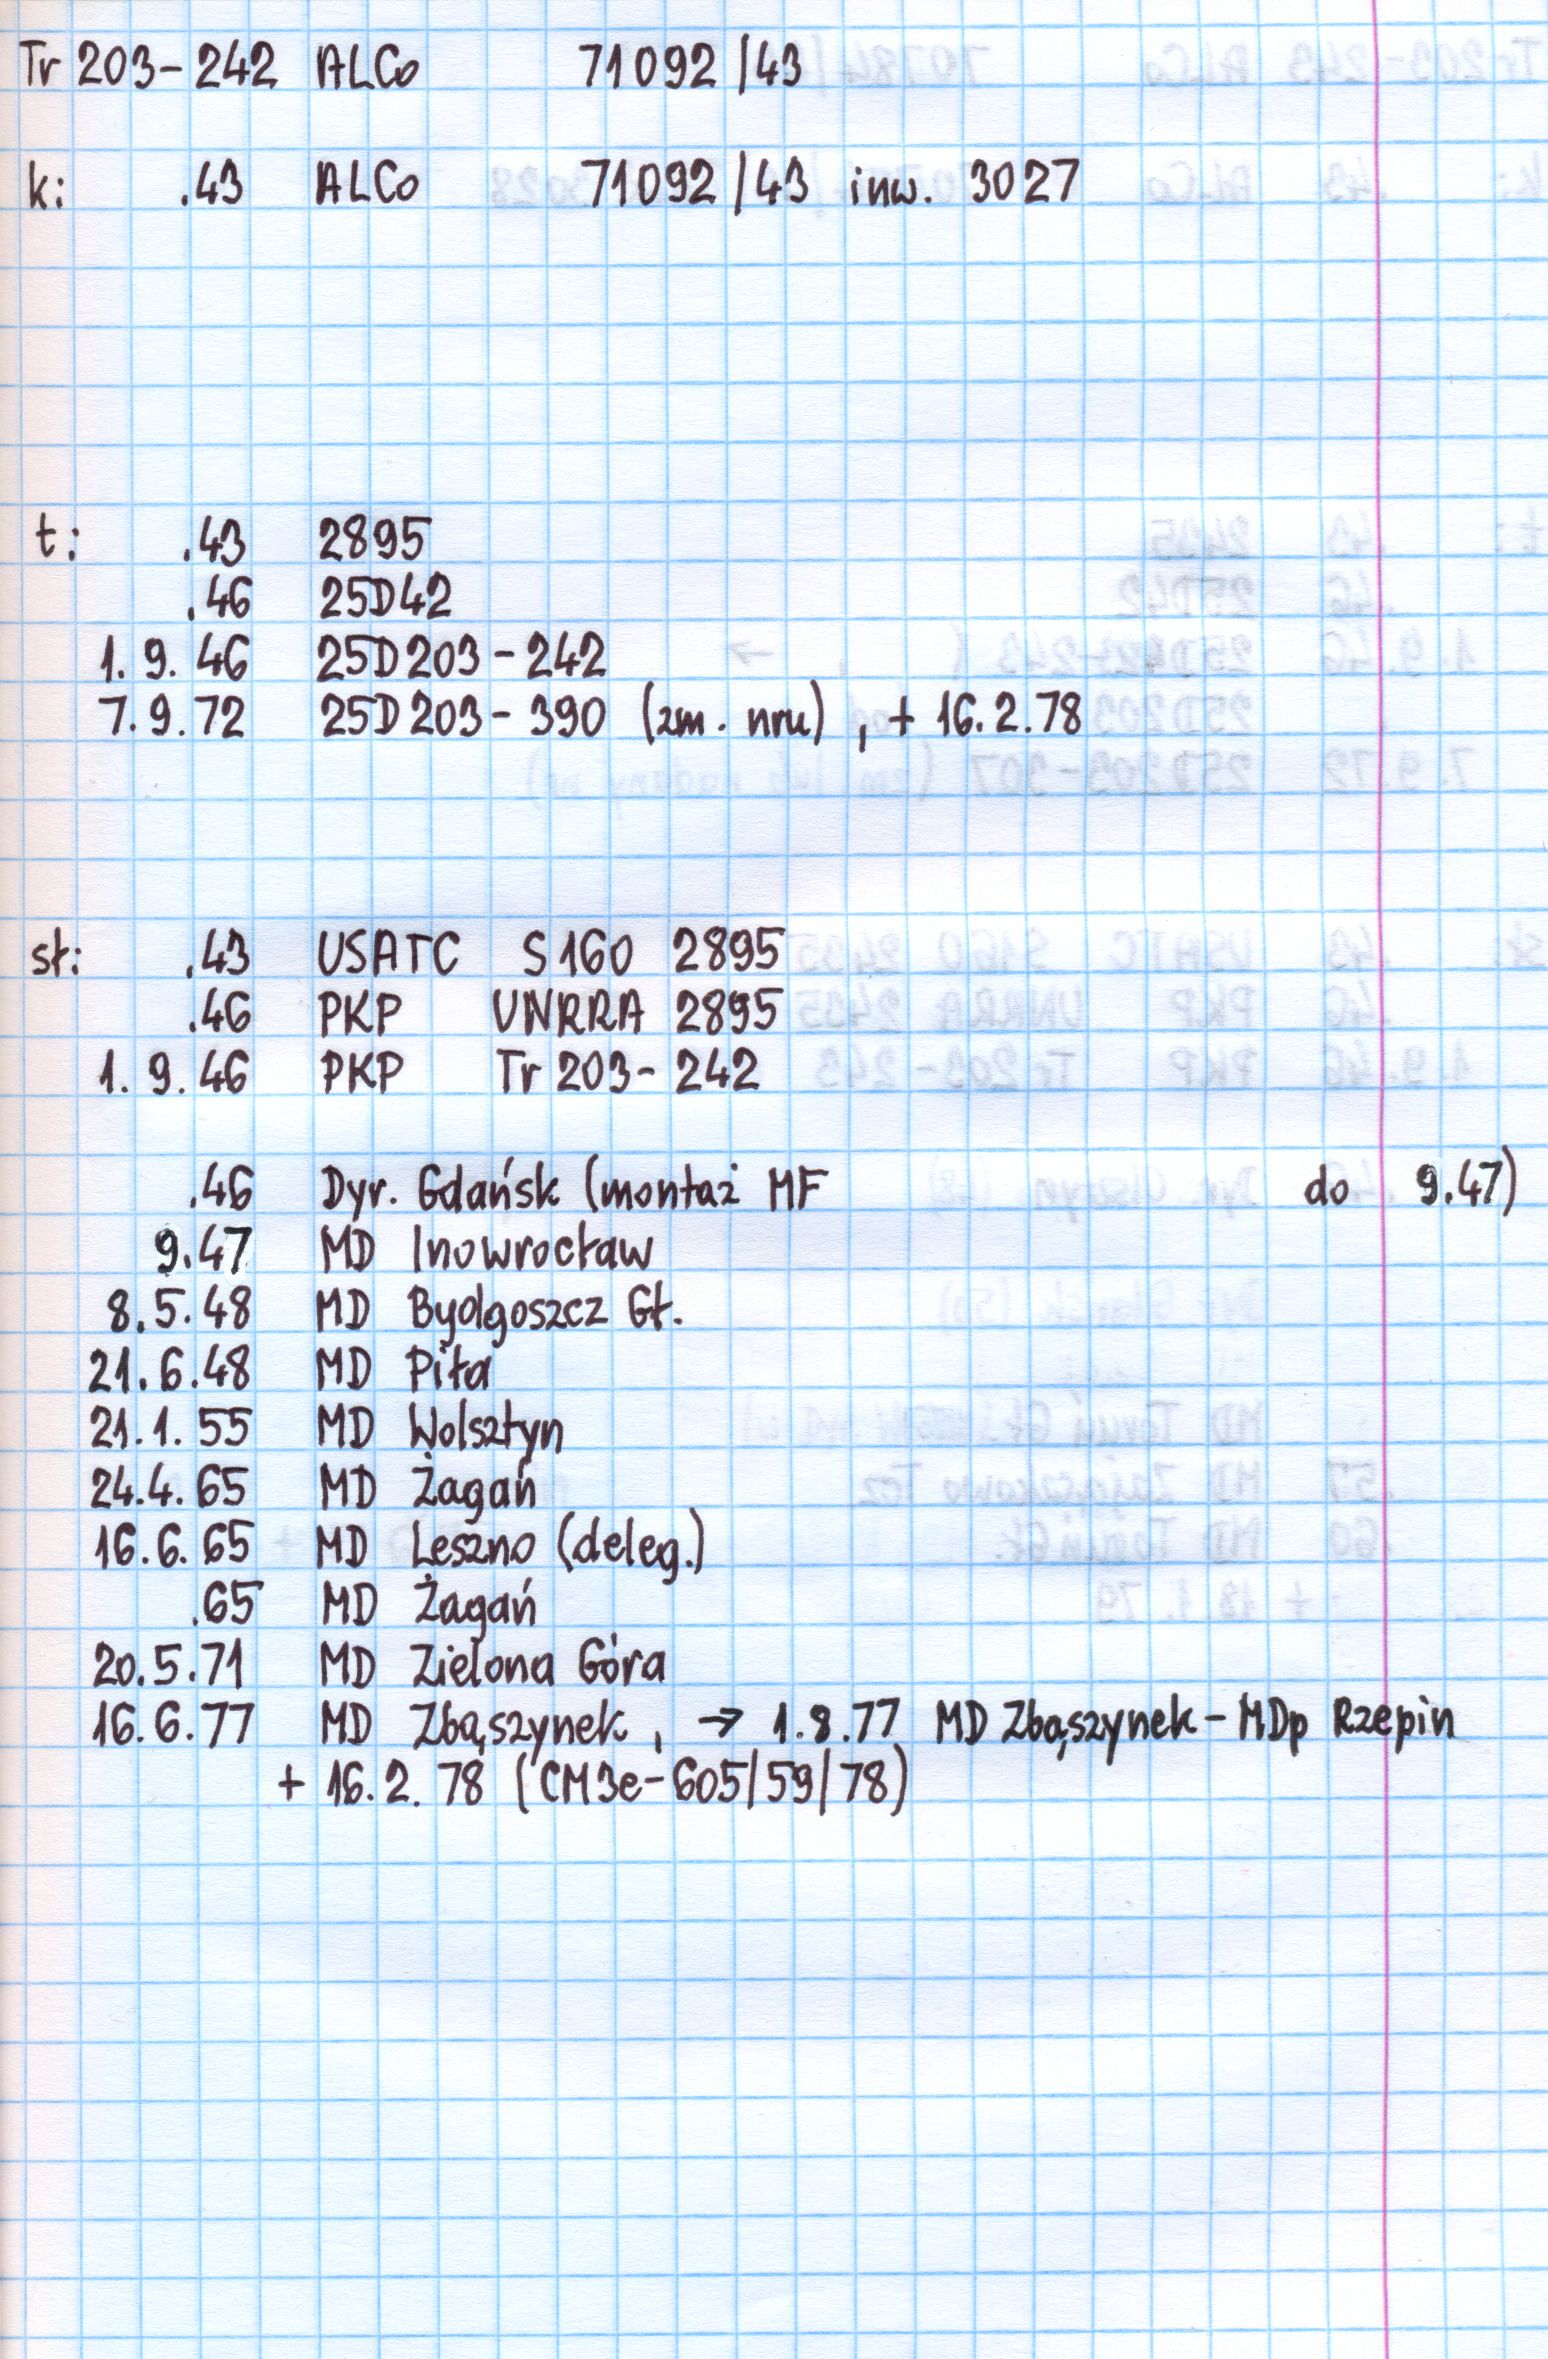 Tr 203-242 ALCo 71092/43
k: .43 ALCo 71092/43 inw. 3027
t: .43 2895
.46 25D42
1.9.46 25D203-242
7.9.72 25D203-390 (zm. nru), + 16.2.78
sł: .43 USATC S160 2895
.46 PKP UNRRA 2895
1.9.46 PKP Tr 203-242
.46 Dyr. Gdańsk (montaż MF do 9.47)
9.47 MD Inowrocław
8.5.48 MD Bydgoszcz Gł.
21.6.48 MD Piła
21.1.55 MD Wolsztyn
24.4.65 MD Żagań
16.6.65 MD Leszno (deleg.)
.65 MD Żagań
20.5.71 MD Zielona Góra
16.6.77 MD Zbąszynek, → 1.8.77 MD Zbąszynek-MDp Rzepin
+ 16.2.78 (CM3e-605/59/78)